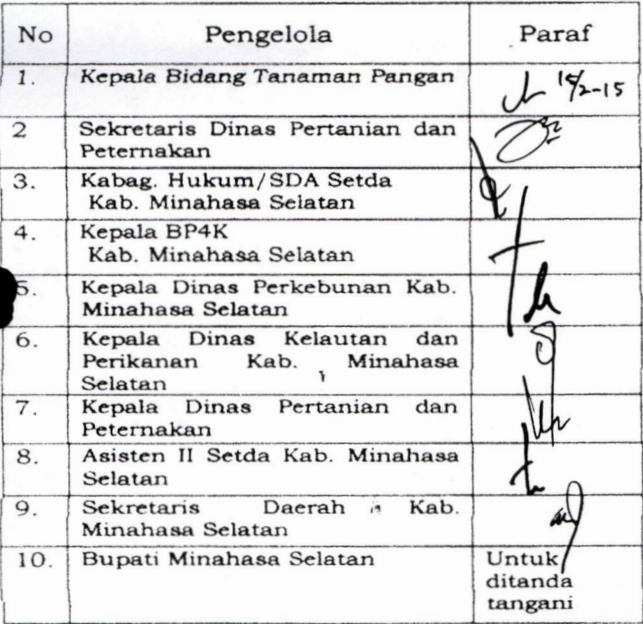 No Pengelola Paraf
1. Kepala Bidang Tanaman Pangan
2 Sekretaris Dinas Pertanian dan
Peternakan
3. Kabag. Hukum/SDA Setda
Kab. Minahasa Selatan
4. Kepala BP4K
Kab. Minahasa Selatan
5. Kepala Dinas Perkebunan Kab.
Minahasa Selatan
6. Kepala Dinas Kelautan dan
Perikanan Kab. Minahasa
Selatan
7. Kepala Dinas Pertanian dan
Peternakan
8. Asisten II Setda Kab. Minahasa
Selatan
9. Sekretaris Daerah Kab.
Minahasa Selatan
10. Bupati Minahasa Selatan Untuk
ditanda
tangani